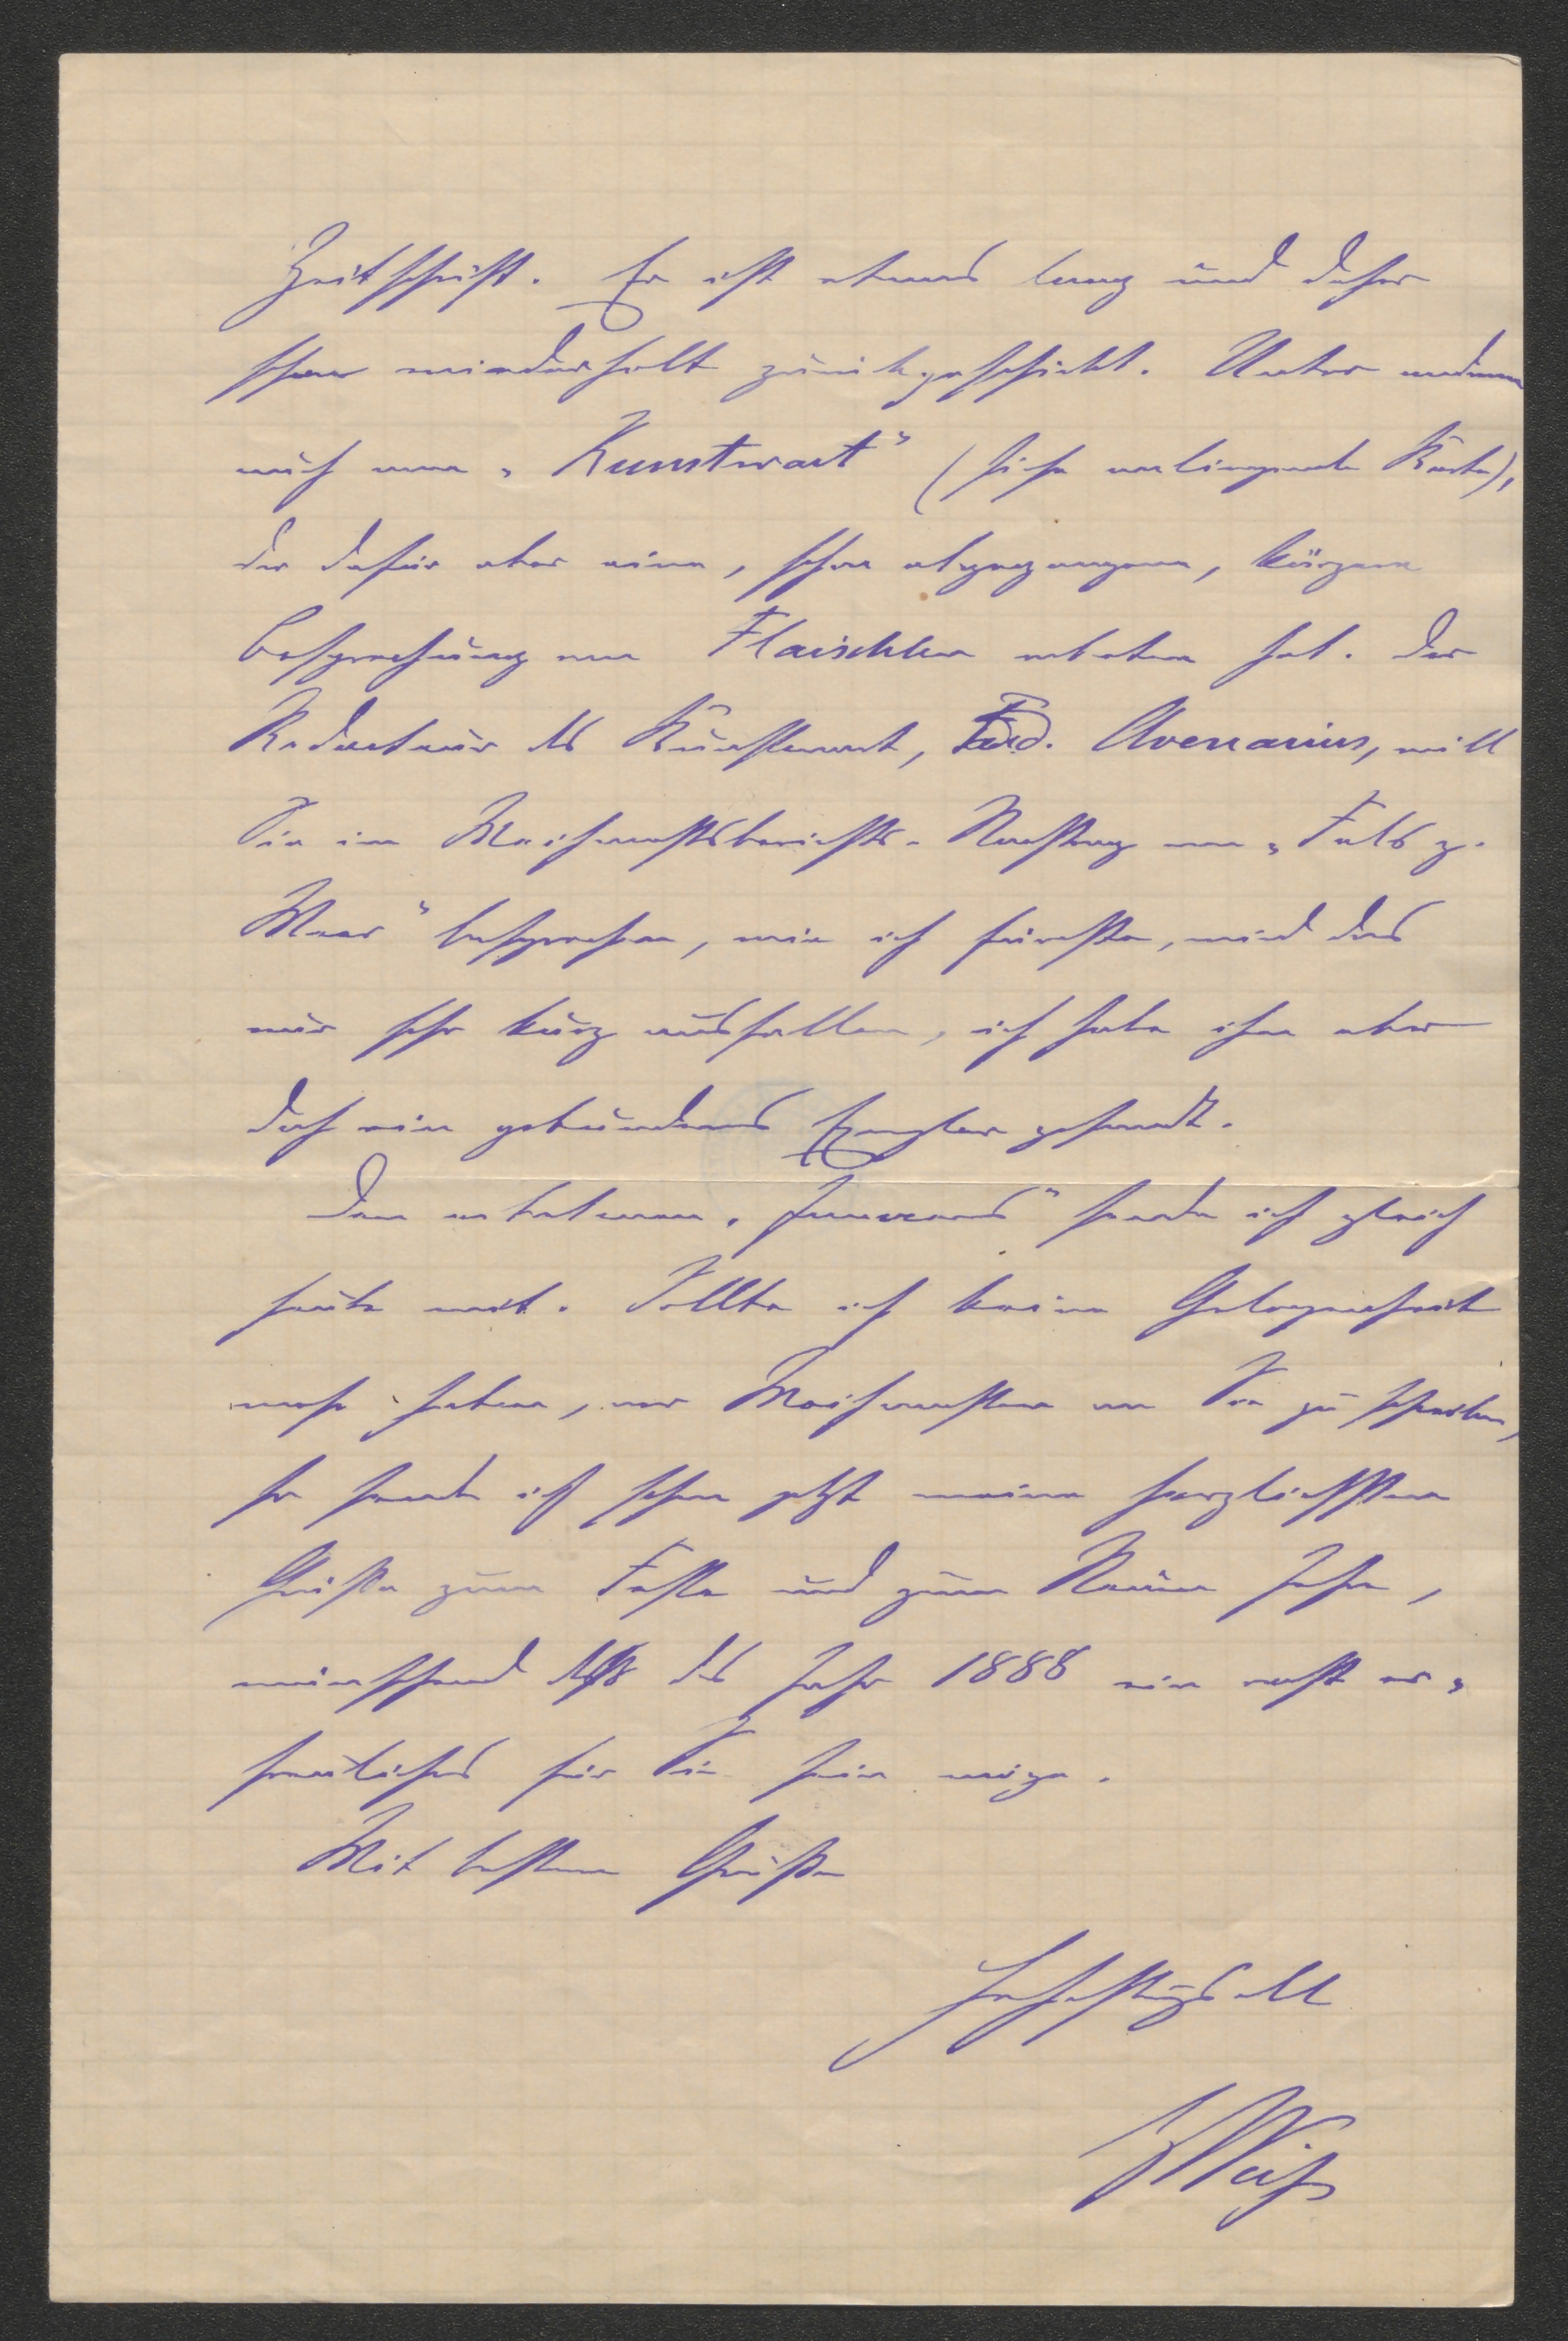 Zeitschrift. Er ist etwas lang und daher
schon wiederholt zurückgeschickt. Unter anderem
auch vom „Kunstwart" (siehe anliegende Karte),
der dafür aber eine, schon abgegangene, kürzere
Besprechung von Flaischlen erbeten hat. Der
Redacteur des Kunstwart, Ferd. Avenarius, will
Sie im Weihnachtsberichts-Nachtrag von „Fels z.
Meer" besprechen, wie ich fürchte, wird das
nur sehr kurz ausfallen, ich habe ihm aber
doch ein gebundenes Exemplar gesandt.
Den erbetenen „ " sende ich gleich
heute mit. Sollte ich keine Gelegenheit
mehr haben, vor Weihnachten an Sie zu schreiben,
so sende ich schon jetzt meine herzlichsten
Grüße zum Feste und zum Neuen Jahre,
wünschend daß das Jahr 1888 ein recht er-
freuliches für Sie sein möge.
Mit besten Grüßen
hochachtungsvoll